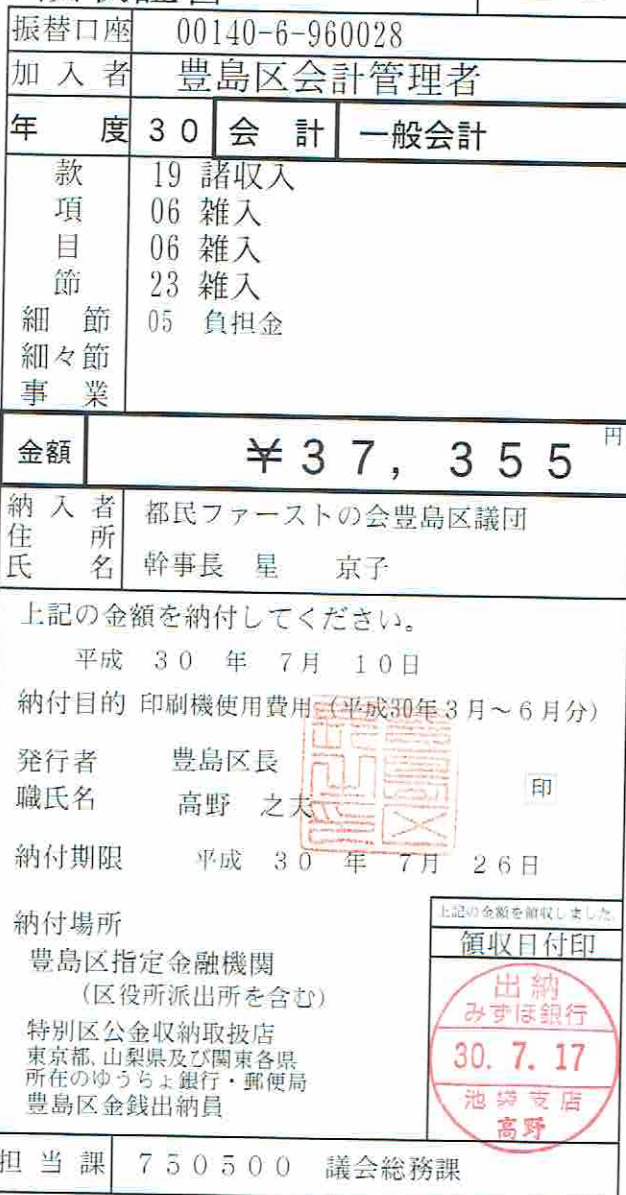 振替口座 00140-6-960028
加入者 豊島区会計管理者
年度 30 会計 一般会計
款 19 諸収入
項 06 雑入
目 06 雑入
節 23 雑入
細節 05 負担金
細々節
事業
金額 ¥37,355 円
納入者 都民ファーストの会豊島区議団
住所
氏名 幹事長 星 京子
上記の金額を納付してください。
平成 30 年 7月 10日
納付目的 印刷機使用費用(平成30年3月~6月分)
発行者 豊島区長
職氏名 高野 之夫
印
納付期限 平成 30 年 7月 26日
納付場所
豊島区指定金融機関
(区役所派出所を含む)
特別区公金収納取扱店
東京都、山梨県及び関東各県
所在のゆうちょ銀行・郵便局
豊島区金銭出納員
上記の金額を領収しました。
領収日付印
出納
みずほ銀行
30.7.17
池袋支店
高野
担当課 750500 議会総務課